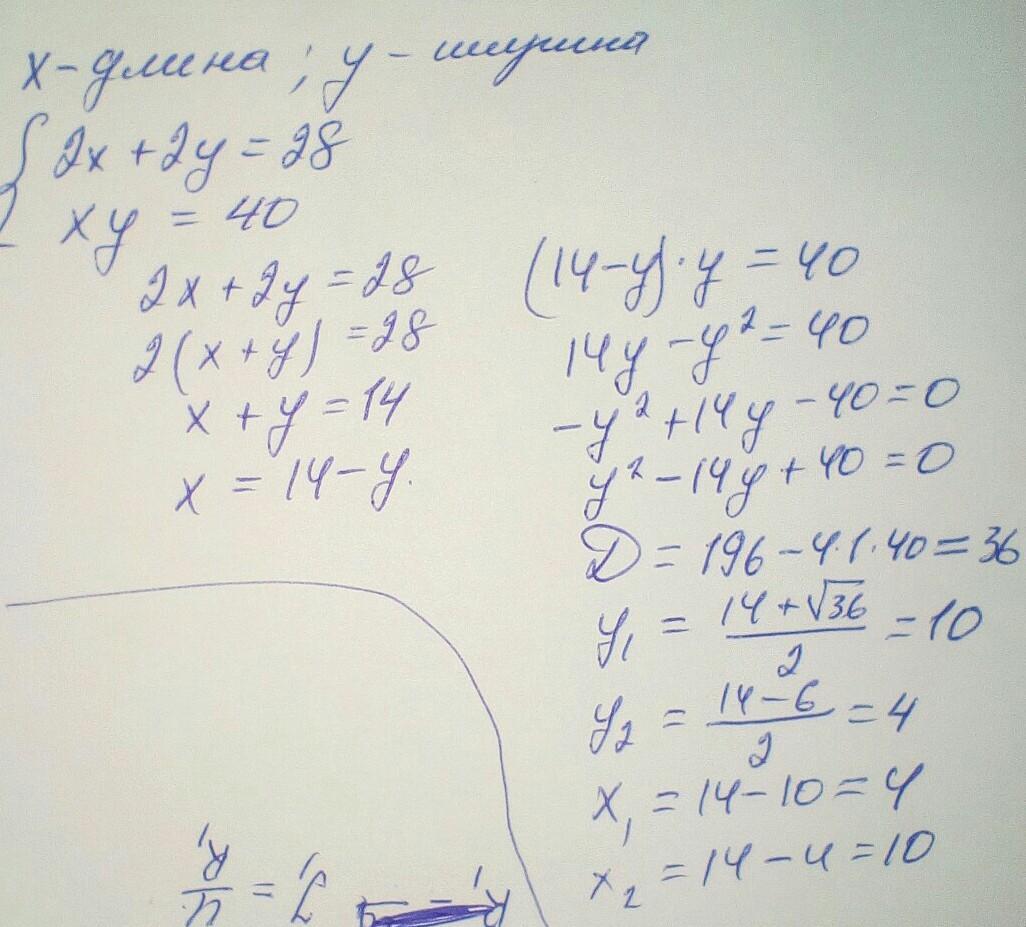 x - длина ; y - ширина
{ 2x + 2y = 28
xy = 40
2x + 2y = 28
2(x + y) = 28
x + y = 14
x = 14 - y.
(14 - y) · y = 40
14y - y² = 40
-y² + 14y - 40 = 0
y² - 14y + 40 = 0
D = 196 - 4·1·40 = 36
y₁ = (14 + √36)/2 = 10
y₂ = (14 - 6)/2 = 4
x₁ = 14 - 10 = 4
x₂ = 14 - 4 = 10